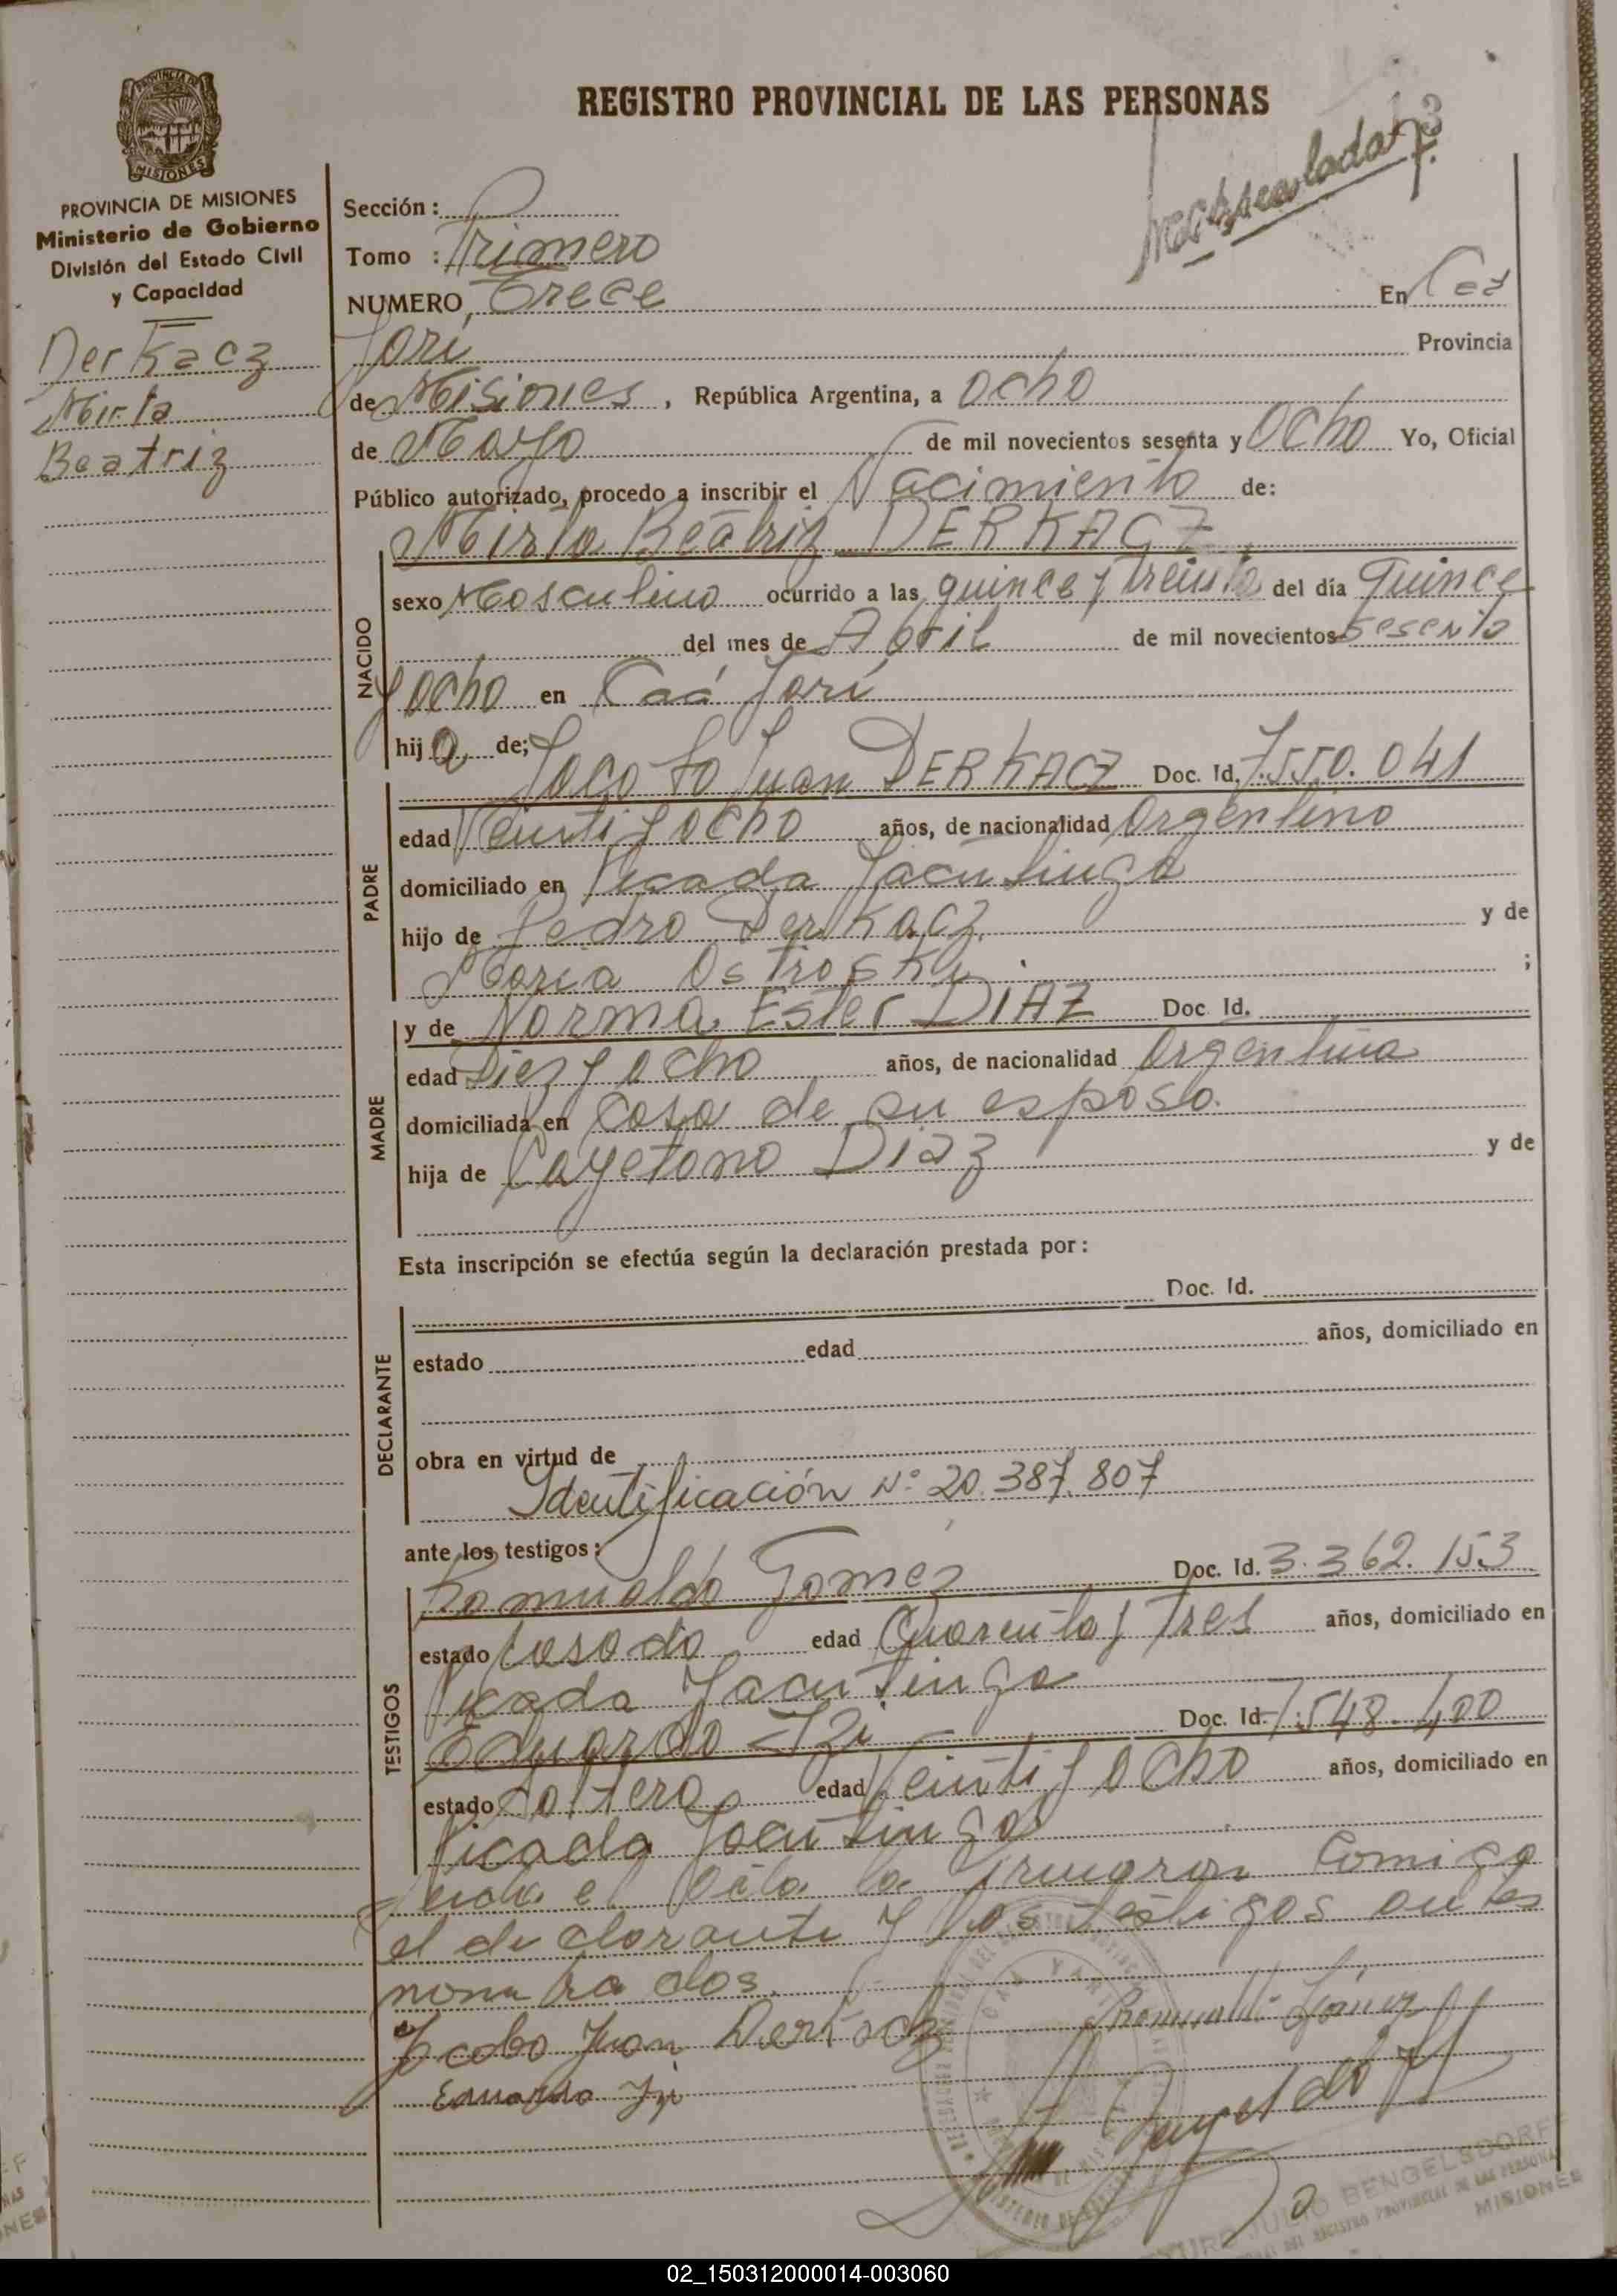 REGISTRO PROVINCIAL DE LAS PERSONAS
13
Matriculada
MISIONES
PROVINCIA DE MISIONES
Ministerio de Gobierno
División del Estado Civil
y Capacidad
Derkacz
Mirta
Beatriz
Sección :
Tomo : Primero
NUMERO Trece En Caá
Yarí Provincia
de Misiones, República Argentina, a Ocho
de Mayo de mil novecientos sesenta y Ocho Yo, Oficial
Público autorizado, procedo a inscribir el Nacimiento de:
Mirta Beatriz DERKACZ
NACIDO
sexo Masculino ocurrido a las quince y treinta del día Quince
del mes de Abril de mil novecientos Sesenta
y ocho en Caá Yarí
hija de;
PADRE
Jacobo Juan DERKACZ Doc. Id. 7.550.041
edad Veinti y ocho años, de nacionalidad Argentino
domiciliado en Picada Yacutinga
hijo de Pedro Derkacz y de
María Ostrosky ;
MADRE
y de Norma Ester DIAZ Doc. Id.
edad Diez y ocho años, de nacionalidad Argentina
domiciliada en Casa de su esposo.
hija de Cayetano Diaz y de
Esta inscripción se efectúa según la declaración prestada por:
Doc. Id.
DECLARANTE
estado edad años, domiciliado en
obra en virtud de
Identificación Nº 20.387.807
ante los testigos:
TESTIGOS
Romualdo Gomez Doc. Id. 3.362.153
estado Casado edad Cuarenta y Tres años, domiciliado en
Picada Yacutinga
Eduardo Doc. Id. 7.548.400
estado Soltero edad Veinti y ocho años, domiciliado en
Picada Yacutinga
Leida el Acta la firmaron Comigo
el declarante y los testigos antes
nombrados.
Jacobo Juan Derkacz Romualdo Gómez
Eduardo
CAA YARI
JULIO BENGELSDORFF
DEL REGISTRO PROVINCIAL DE LAS PERSONAS
MISIONES
02_150312000014-003060